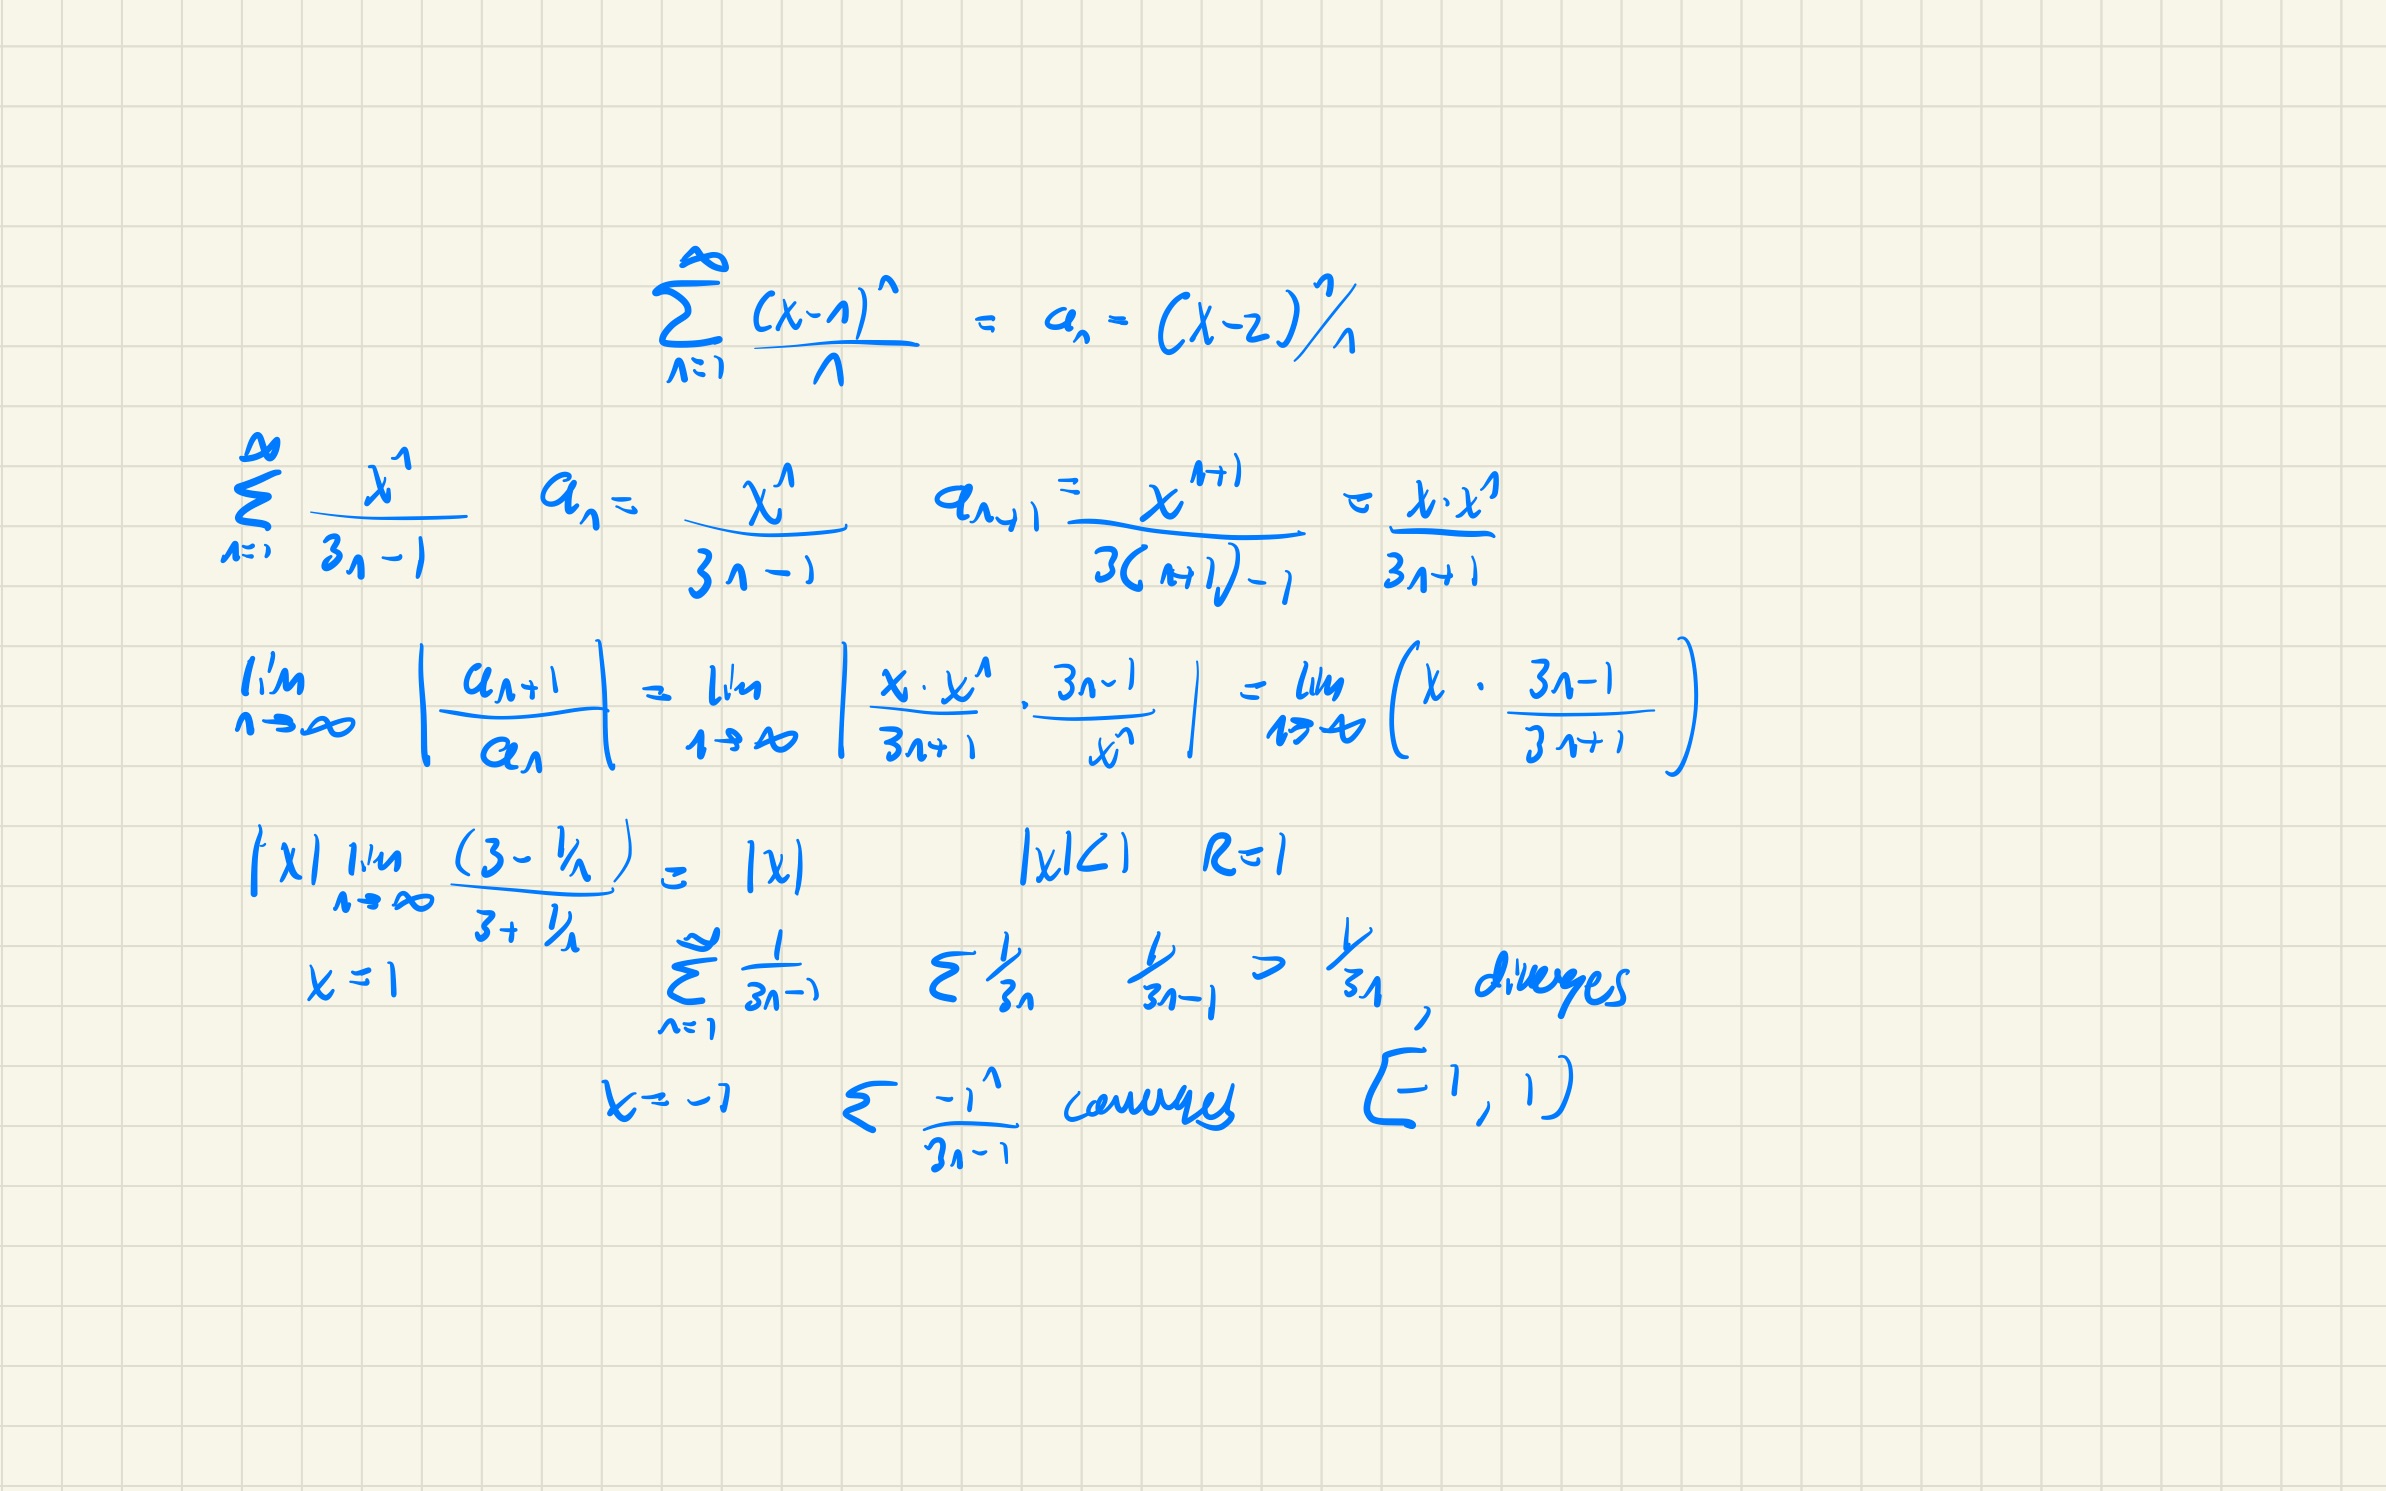 ∑_{n=1}^{∞} (x-n)^n / n = a_n = (x-2)^n/n
∑_{n=1}^{∞} x^n / (3n-1)   a_n = x^n / (3n-1)   a_{n+1} = x^{n+1} / (3(n+1)-1) = x·x^n / (3n+1)
lim_{n→∞} |a_{n+1} / a_n| = lim_{n→∞} |x·x^n / (3n+1) · (3n-1) / x^n| = lim_{n→∞} (x · (3n-1) / (3n+1))
|x| lim_{n→∞} (3 - 1/n) / (3 + 1/n) = |x|   |x|<1   R=1
x=1   ∑_{n=1}^{∞} 1 / (3n-1)   ∑ 1/3n   1/(3n-1) > 1/3n, diverges
x=-1   ∑ -1^n / (3n-1) converges   [-1, 1)